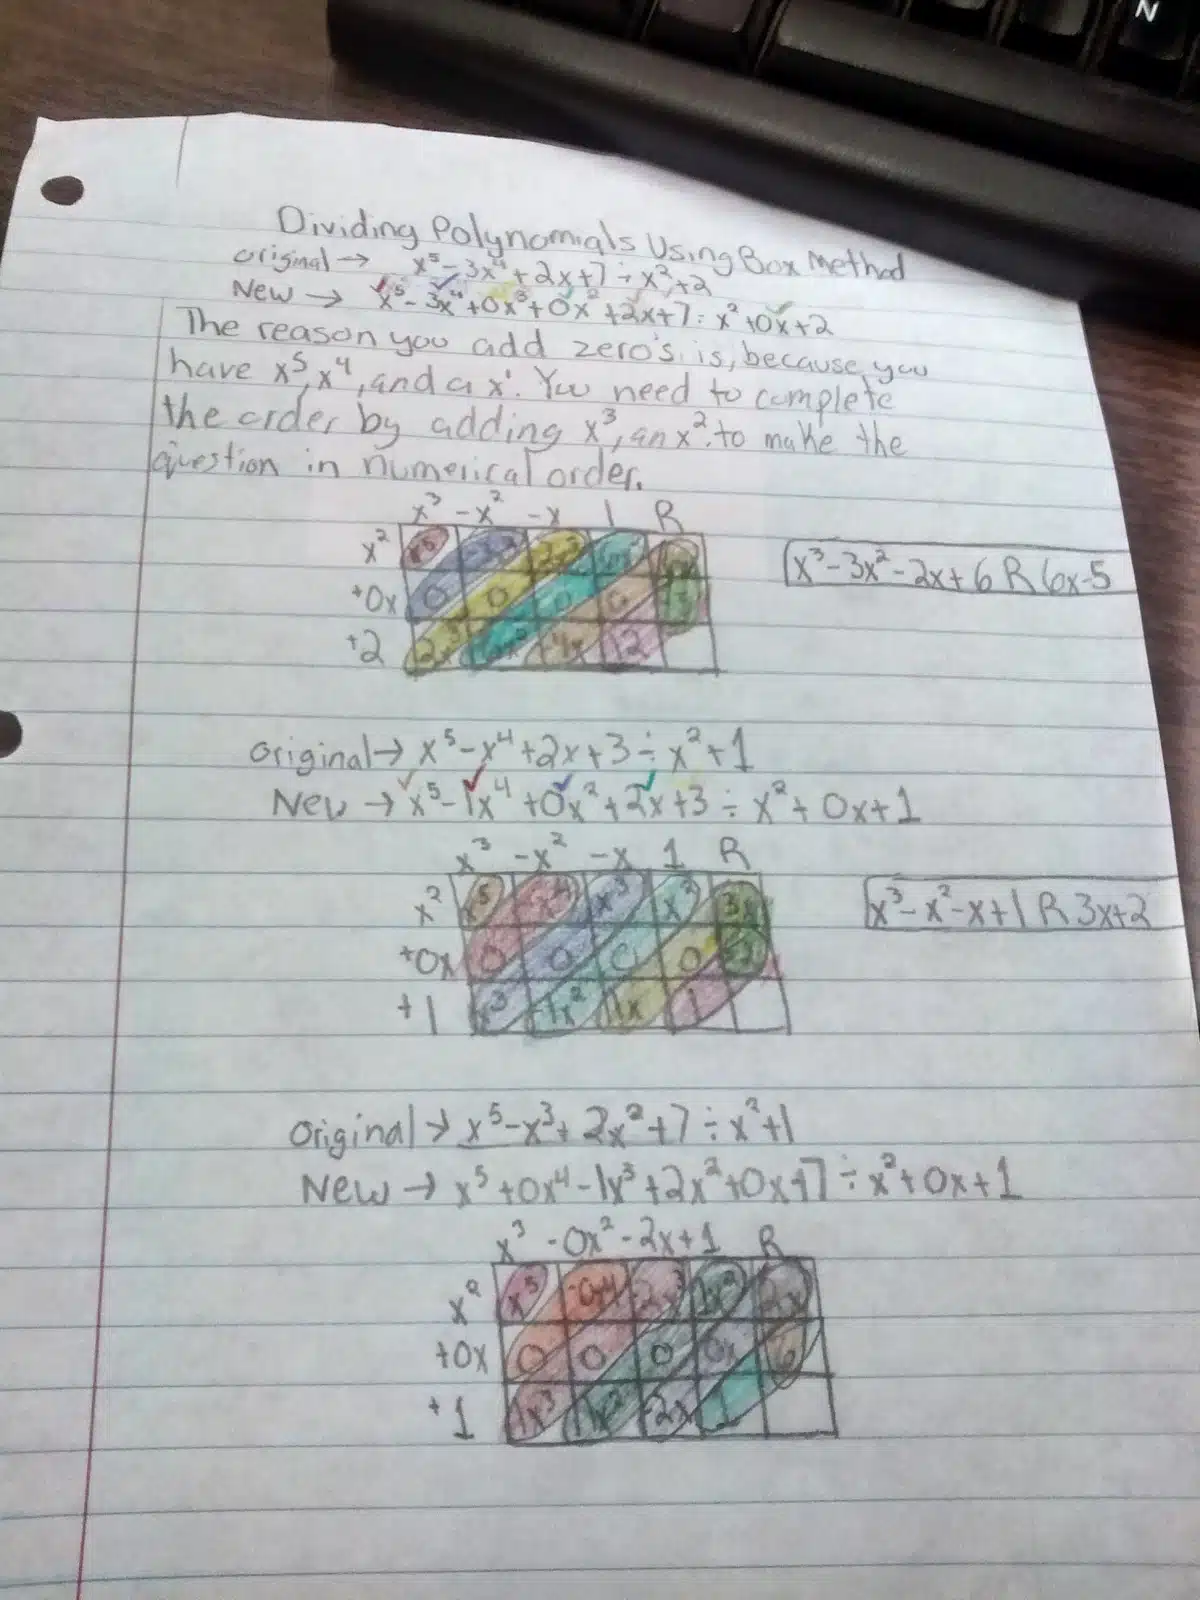 N
Dividing Polynomials Using Box Method
original → x⁵-3x⁴+2x+7÷x²+2
New → x⁵-3x⁴+0x³+0x²+2x+7÷x²+0x+2
The reason you add zero's is, because you
have x⁵, x⁴, and a x¹. You need to complete
the order by adding x³, an x². to make the
question in numerical order.
x³ -x² -x 1 R
x²
x⁵
x³-3x²-2x+6 R 6x-5
+0x 0 0 0 0
+2 2x³ -4x 12
Original → x⁵-x⁴+2x+3÷x²+1
New → x⁵-1x⁴+0x²+2x+3÷x²+0x+1
x³ -x² -x 1 R
x² x⁵ -x⁴ -x³ x² 3x
x³-x²-x+1 R 3x+2
+0x 0 0 0 0 2
+1 x³ -1x² 1x 1
Original → x⁵-x³+2x²+7÷x²+1
New → x⁵+0x⁴-1x³+2x²+0x+7÷x²+0x+1
x³ -0x² -2x+1 R
x² x⁵ -0x⁴ -2x³ 1x² 2x
+0x 0 0 0 0x 6
+1 1x³ 1x² -2x 1